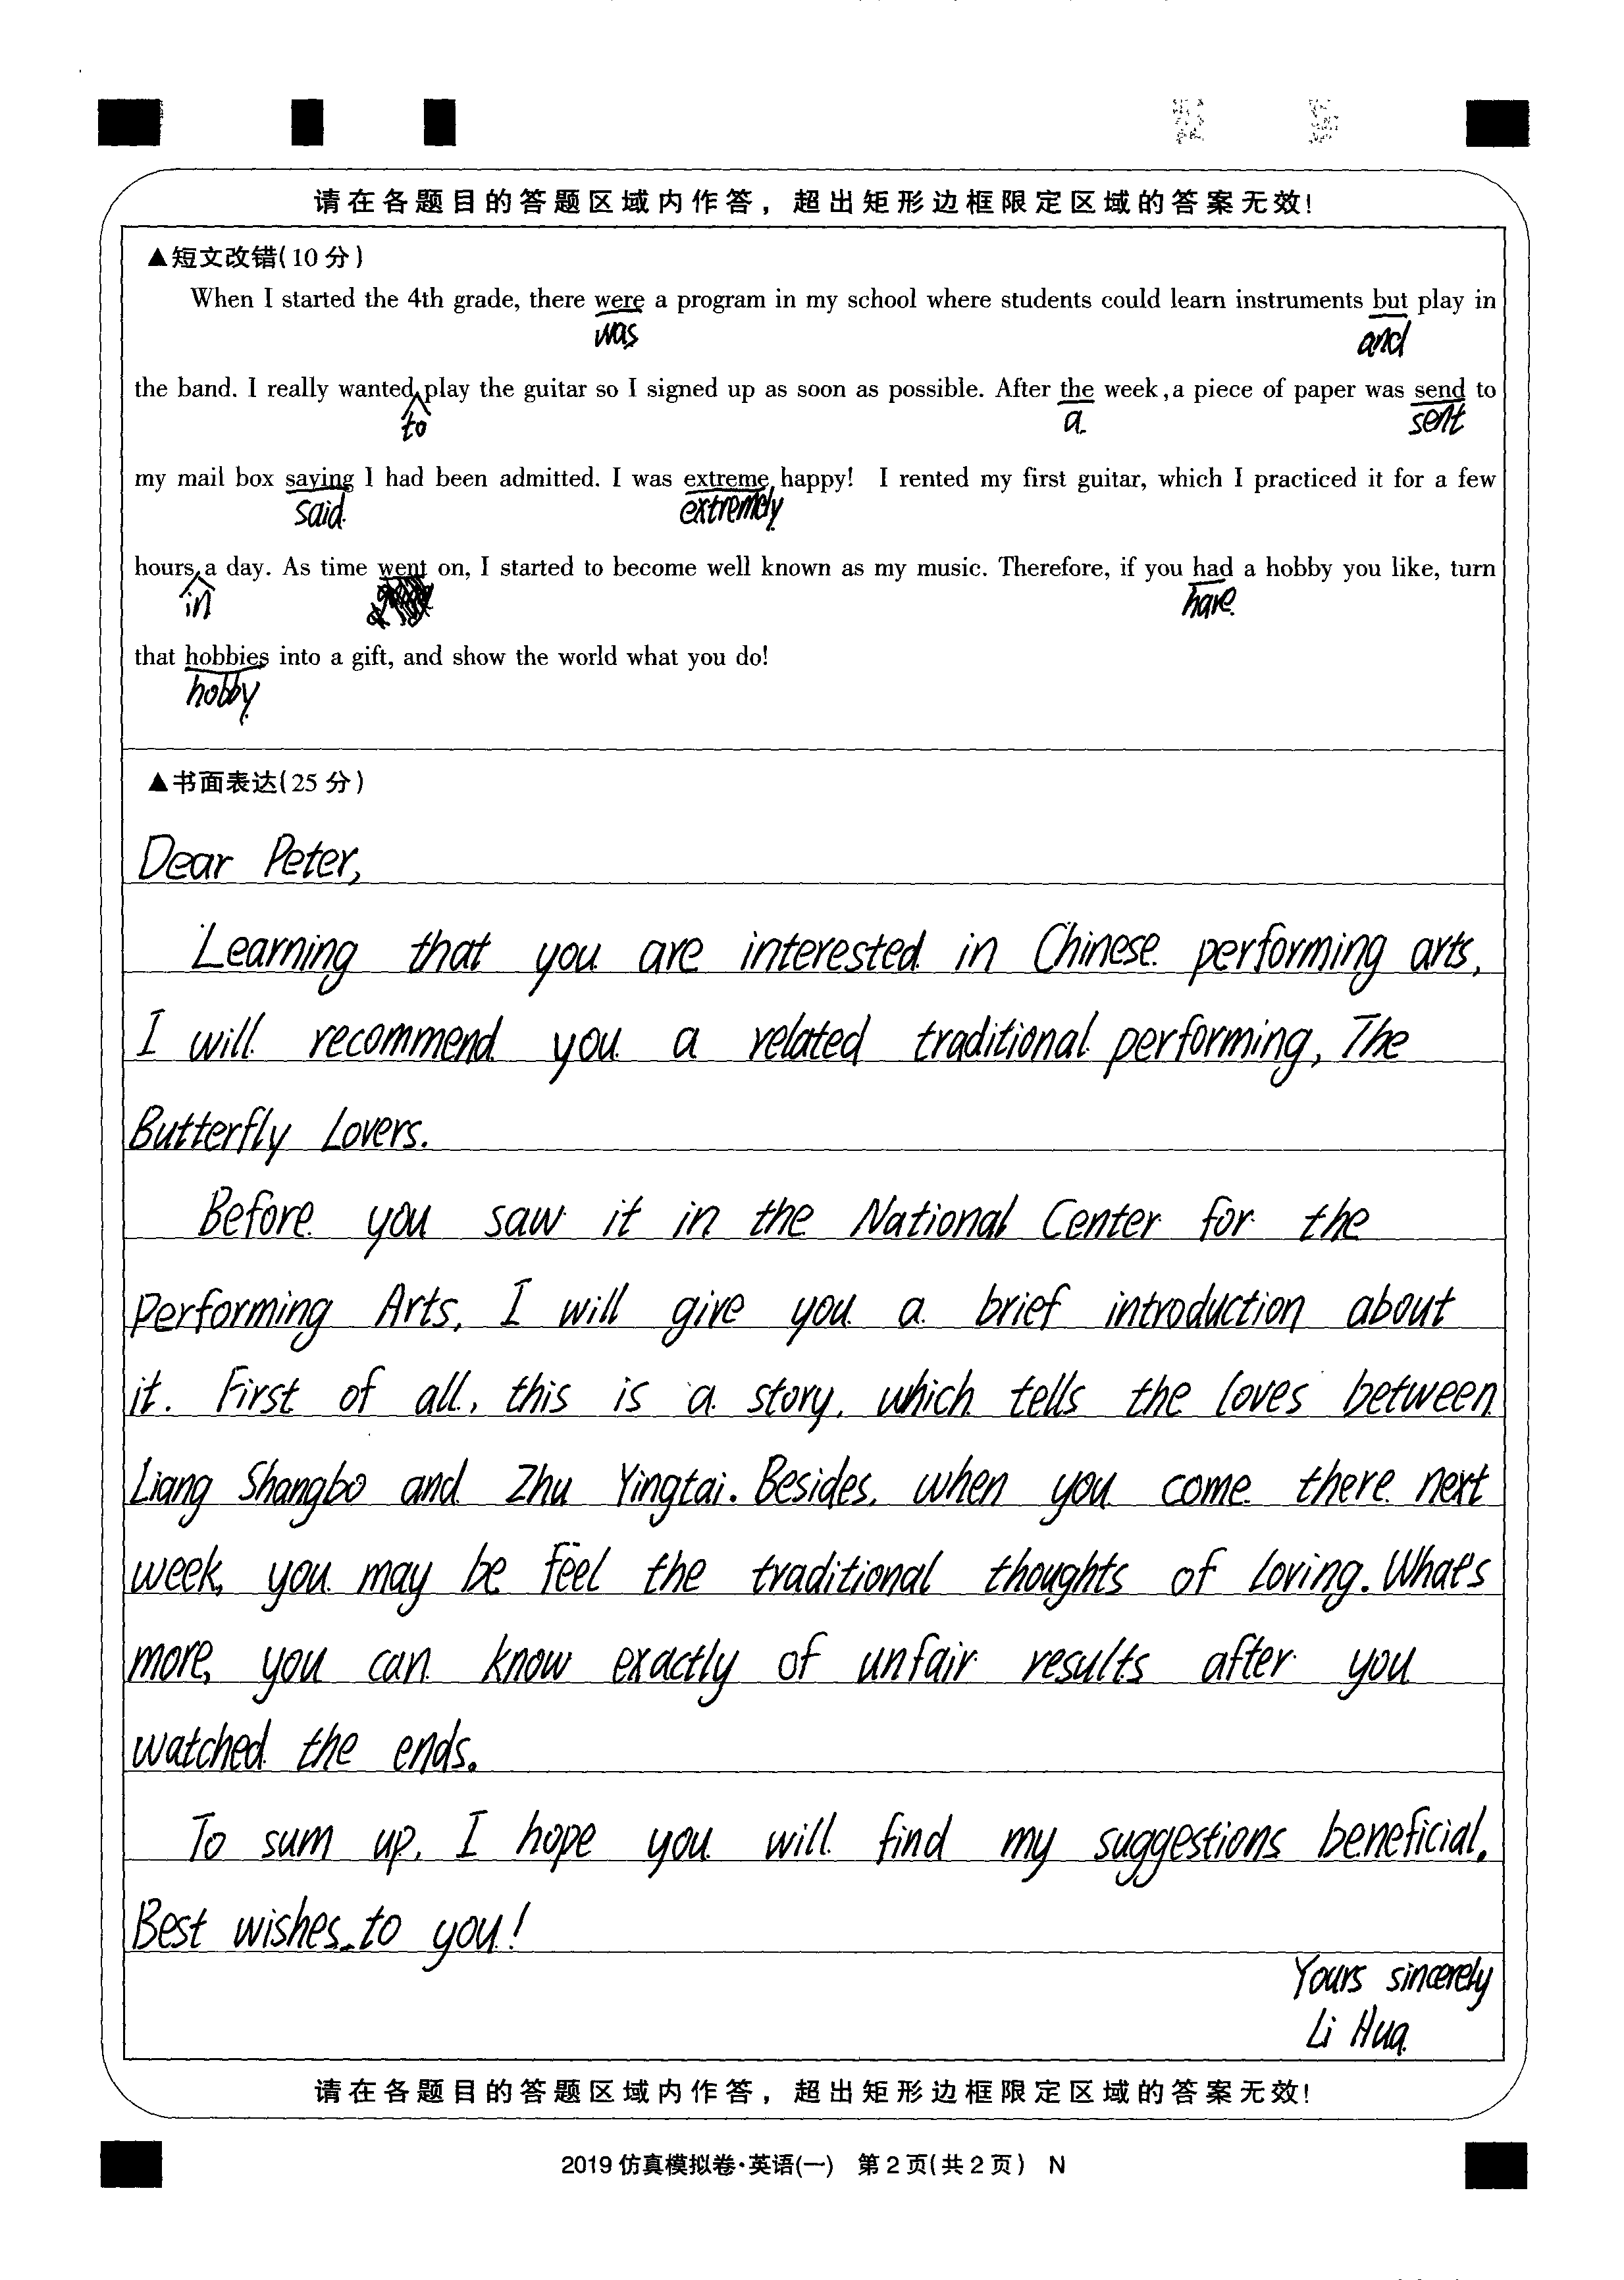 请在各题目的答题区域内作答，超出矩形边框限定区域的答案无效!
▲短文改错(10分)
When I started the 4th grade, there were a program in my school where students could learn instruments but play in
was and
the band. I really wanted play the guitar so I signed up as soon as possible. After the week,a piece of paper was send to
to a sent
my mail box saying I had been admitted. I was extreme happy! I rented my first guitar, which I practiced it for a few
said extremely
hours a day. As time went on, I started to become well known as my music. Therefore, if you had a hobby you like, turn
in have
that hobbies into a gift, and show the world what you do!
hobby
▲书面表达(25分)
Dear Peter,
Learning that you are interested in Chinese performing arts,
I will recommend you a related traditional performing, The
Butterfly Lovers.
Before you saw it in the National Center for the
Performing Arts, I will give you a brief introduction about
it. First of all, this is a story, which tells the loves between
Liang Shangbo and Zhu Yingtai. Besides, when you come there next
week, you may be feel the traditional thoughts of loving. What's
more, you can know exactly of unfair results after you
watched the ends.
To sum up, I hope you will find my suggestions beneficial.
Best wishes to you!
Yours sincerely
Li Hua
请在各题目的答题区域内作答，超出矩形边框限定区域的答案无效!
2019仿真模拟卷·英语(一) 第2页(共2页) N